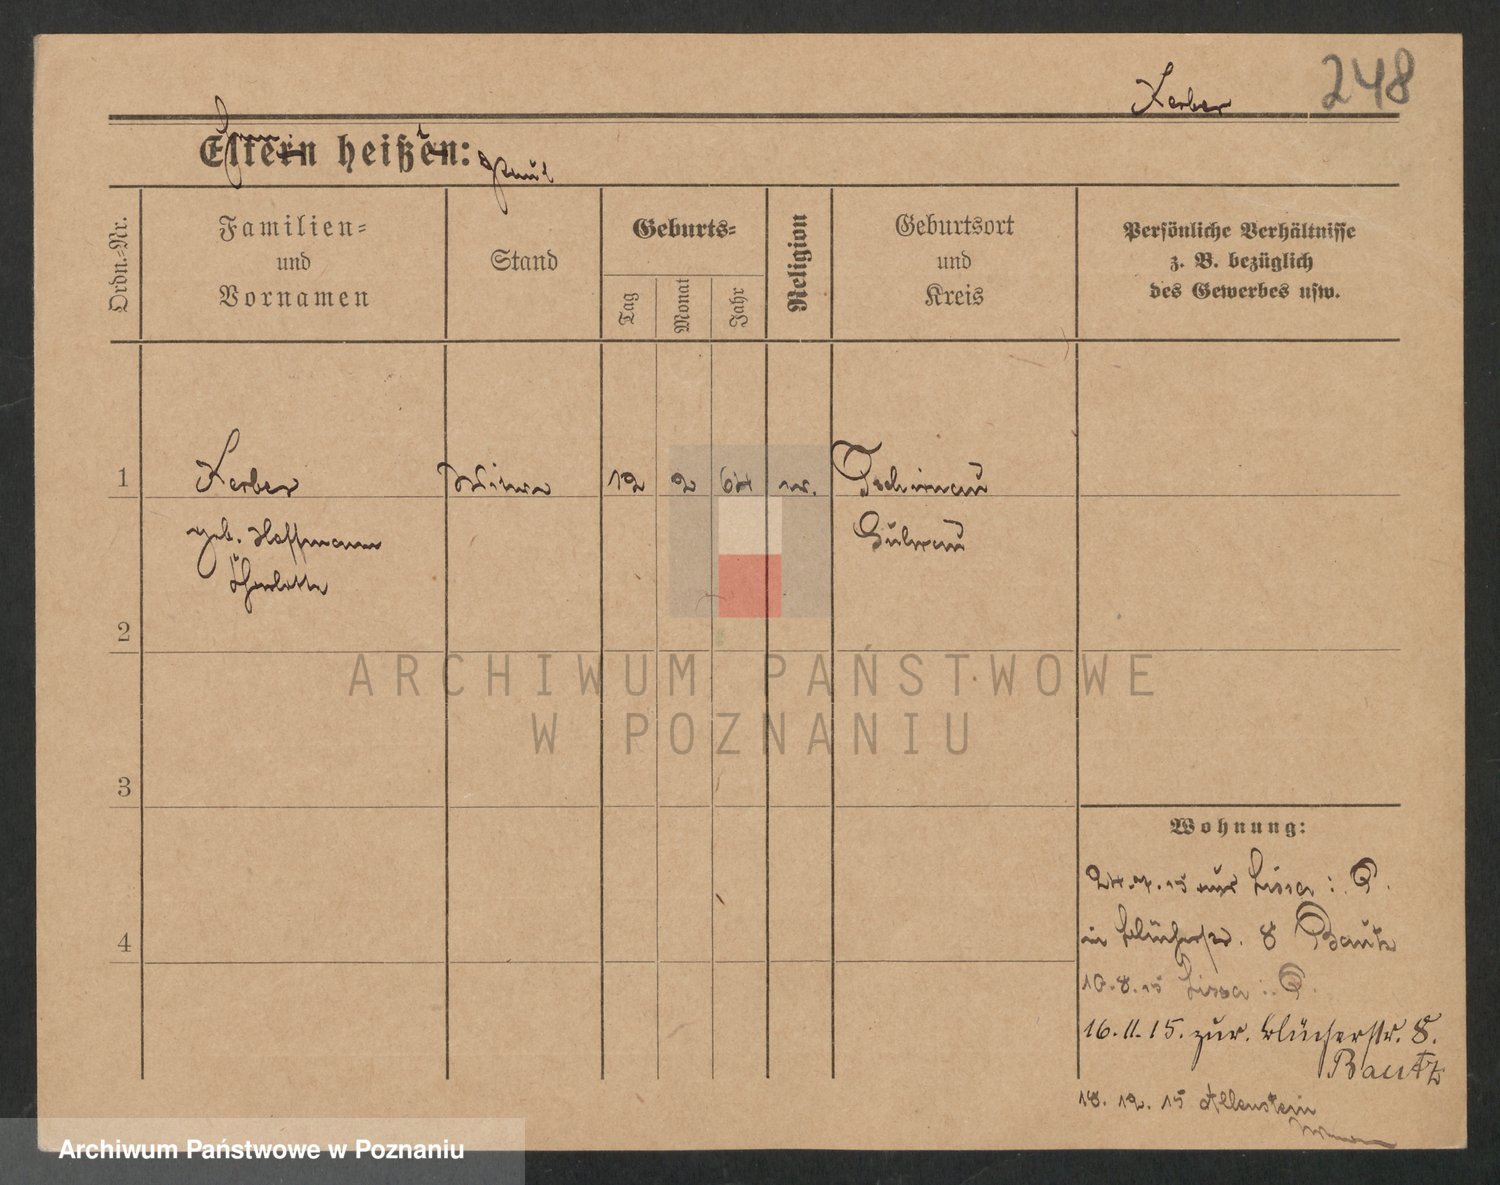 248
Kerber
Eltern heißen:
Paul
Ordn.-Nr.
Familien-
und
Vornamen
Stand
Geburts-
Tag
Monat
Jahr
Religion
Geburtsort
und
Kreis
Persönliche Verhältnisse
z. B. bezüglich
des Gewerbes usw.
1
Kerber
Witwe
12
2
64
Tschirnau
geb. Hoffmann
Guhrau
Charlotte
2
3
4
Wohnung:
24.7.15 aus Lissa i. P.
in Blücherstr. 8 Bautz
10.8.15 Lissa i. P.
16.11.15. zur. Blücherstr. 8.
Bautz
18.12.15 Allenstein
ARCHIWUM PAŃSTWOWE
W POZNANIU
Archiwum Państwowe w Poznaniu